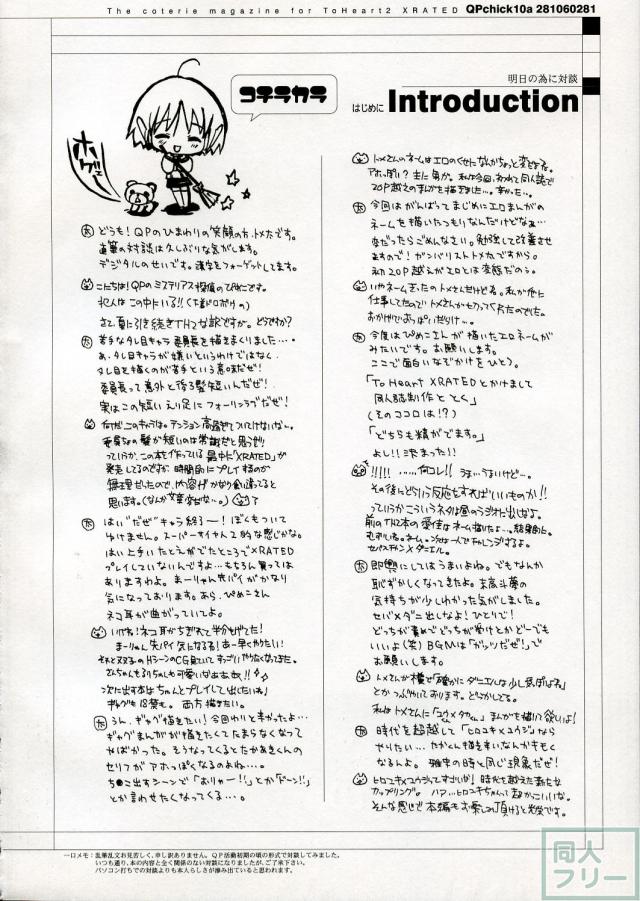 The coterie magazine for ToHeart2 XRATED QPchick10a 281060281
明日の為に対談
はじめに Introduction
コチラカラ
ホゲェ
どうも!QPのひまわりの笑顔の方、トメ太です。
直筆の対談は久しぶりな気がします。
デジタルのせいです。漢字をフォーゲットしてます。
こにちは!QPのミステリアス探偵のぴめこです。
犯人はこの中にいる!!
さて、夏に引き続きTH2な訳ですが。どうですか?
苦手なタレ目キャラ委員長を描きまくりました…。
あ、タレ目キャラが嫌いというわけではなく、
タレ目を描くのが苦手という意味だぜ!
委員長って意外と後る髪短いんだぜ!
実はこの短いえり足にフォーリンラブだぜ!
何だ、このキャラは。テンション高過ぎてついてけないな〜。
委員ちょの髪が短いのは常識だと思うぜ!
っていうか、この本を作っている最中に「XRATED」が
発売してるのですが、時間的にプレイするのが
無理だったので、内容がかなり食い違ってると
思います。(なんか文章変だな…。)
はい"だぜ"キャラ終了ー!ぼくもついて
ゆけません。スーパーサイヤ人2的な感じかな。
はい上手いたとえがでたところでXRATED
プレイしていないんですよ…もちろん買っては
ありますわよ。まーりゃん先パイがかなり
気になっております。あら、ぴめこさん
ネコ耳が曲がっていてよ。
いけね!ネコ耳がちぎれて半分もげてた!
まーりゃん先パイ気になる!あー早くやりたい!
それと双子のHシーンのCG見ていて、すっごいやりたくなってきた。
さんちゃんもるりちゃんも可愛いなああ奴!!
次に出す本はちゃんとプレイして出したいね!
ギャグも18禁も。両方描きたい。
うん、ギャグ描きたい!今回わりと辛かったよ…
ギャグまんがが描きたくてたまらなくなって
やばかった。そうなってくるとたかあきくんの
セリフがアホっぽくなるのよね…。
ち●こ出すシーンで「おりゃー!!」とか「どーン!!」
とか言わせたくなってくる…。
トメさんのネームはエロのくせになんかちょっと変だよね。
アホっぽい?主に男が。私は今回、初めて同人誌で
20P越えのまんがを描きました…。辛かった…。
今回はがんばってまじめにエロまんがの
ネームを描いたつもりなんだけどなぁ…
変だったらごめんなさい。勉強して改善させ
ますので!ガンバリストトメ太ですから。
初の20P越えがエロとは変態だのぅ。
いやネームきったのトメさんだけどな。私が他に
仕事してたので、トメさんがネーム切ってくれたのでした。
おかげでおっぱいだらけ〜。
今度はぴめこさんが描いたエロネームが
みたいです。お願いします。
ここで面白いなぞかけをひとつ。
「To Heart XRATEDとかけまして
同人誌制作ととく」
(そのココロは!?)
「どちらも精がでます。」
よし!!決まった!!
!!!!! ……何コレ!! うま…うまいけど…。
その後にどういう反応をすればいいものか!!
っていうかこういうネタは昼のラジオに出しなよ。
前のTH2本の愛佳のネーム描いたよ…。結果的に。
セバスチャン×ダニエル。
即興にしてはうまいよね。でもなんか
恥ずかしくなってきたよ。末高斗夢の
気持ちが少しわかった気がしました。
セバ×ダニ出しなよ!ひとりで!
どっちが責めでどっちが受けとかどーでも
いいよ(笑)BGMは「ガッツだぜ!」で
お願いします。
トメさんが横で「確かにダニエルは少し気がひけるね」
とかつぶやいております。どうかしてる。
私はトメさんに「ユウ×タカくん」まんがも描いて欲しいよ!
時代を超越して「ヒロユキ×ユウジ」なら
やりたい…。たかくん描き辛いなんかキモく
なるんよ。雅史の時と同じ現象だぜ!
ヒロユキ×ユウジってすごいな!時代も越えた新たな
カップリング。ハァ…ヒロユキちゃんって超かっこいいな。
そんな感じで本編もお楽しみ頂けると光栄です。
一口メモ:乱筆乱文お見苦しく、申し訳ありません。QP活動初期の頃の形式で対談してみました。
いつも通り、本の内容と全く関係のない対談になりましたが、ご了承下さい。
パソコン打ちでの対談よりも本人らしさが滲み出ていると思われます。
同人
フリー